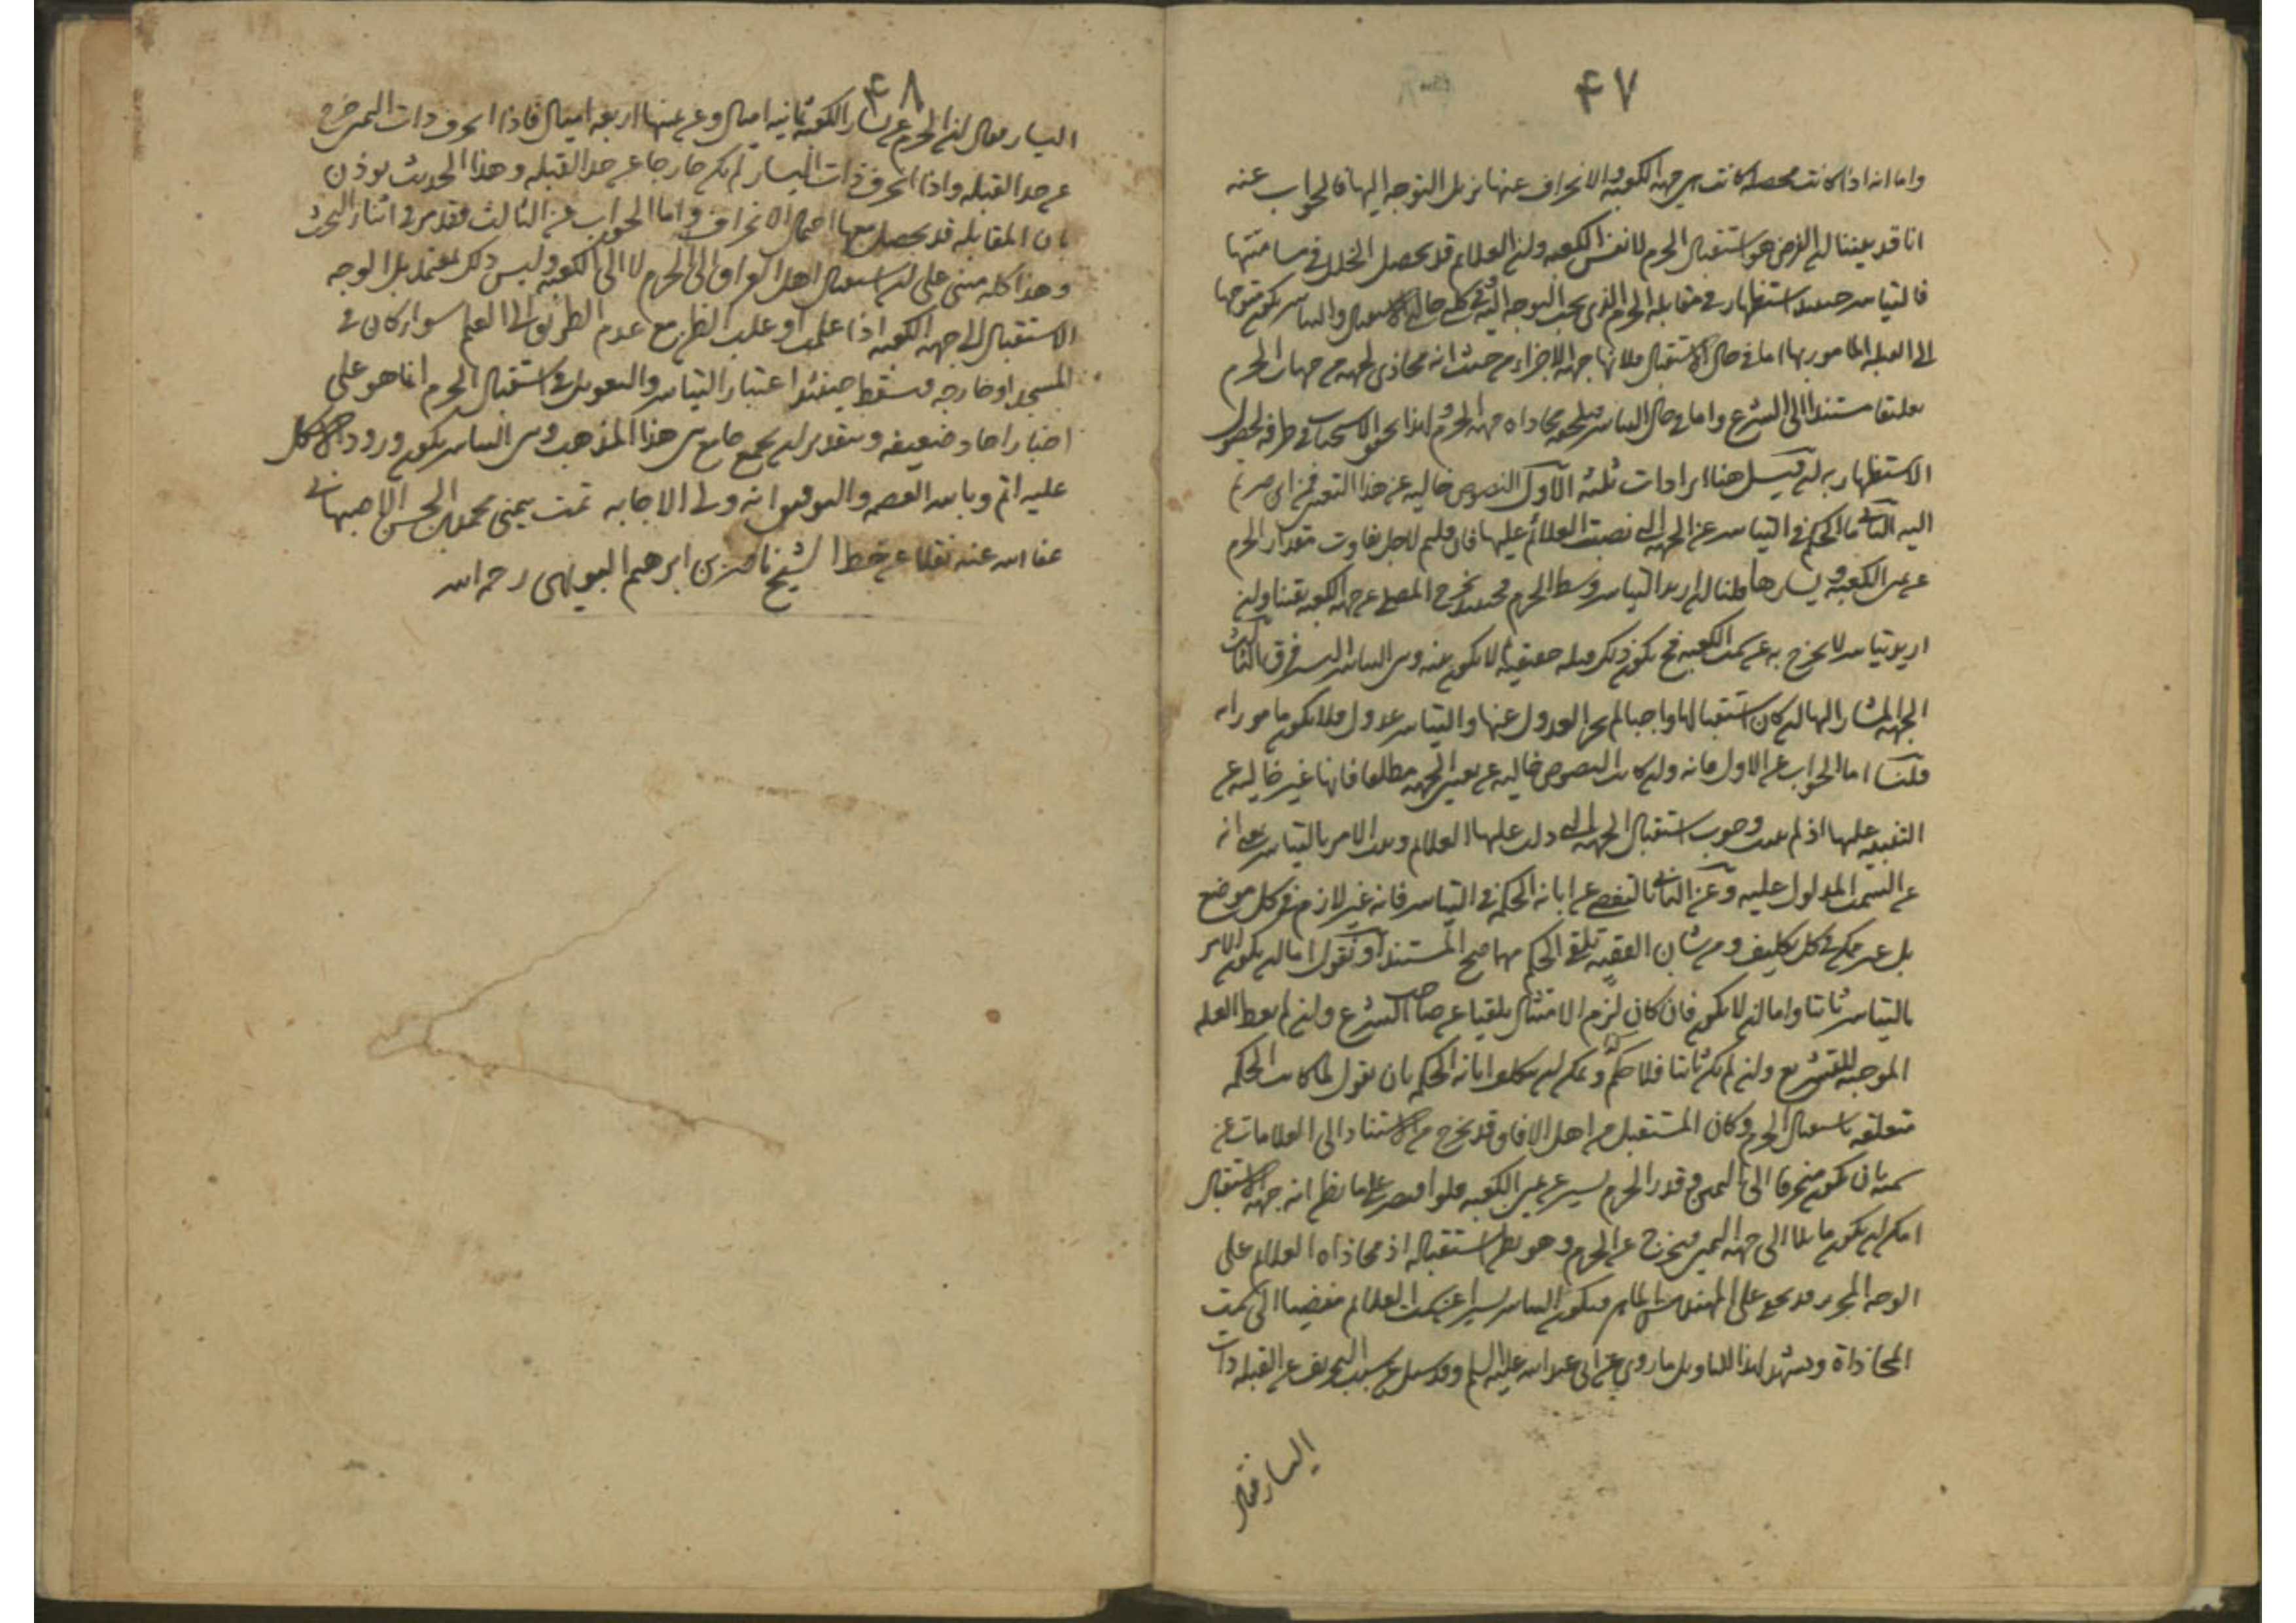 ۴۷
واما انه اذا كانت محصله كانت هي جهة الكعبه والانحراف عنها يزيل التوجه اليها فالجواب عنه
انا قد بينا ان الفرض هو استقبال الحرم لا نفس الكعبه وان العلائم قد يحصل الخلل في مسامتتها
فالتياسر حينئذ استظهار في مقابله الحرم الذي يجب التوجه اليه في كل حالتي الاستقبال والتياسر يكون متوجها
الى القبله المامور بها اما في حال الاستقبال فلانها جهة الاجزاء من حيث انه محاذي لجهه من جهات الحرم
تغليبا مستندا الى الشرع واما في حال التياسر فلتحقق محاذاه جهة الحرم لهذا تحقق الاستحباب في طرفه لحصول
الاستظهار به ان قيل هنا ايرادات ثلثه الاول النصوص خاليه عن هذا التعيين فمن اين صرتم
اليه الثاني ما الحكم في التياسر عن الجهة التي نصبت العلائم عليها فان قلتم لاجل تفاوت مقدار الحرم
عن يمين الكعبه ويسارها قلنا ان اريد التياسر وسط الحرم فحينئذ يخرج المصلي عن جهة الكعبه يقينا وان
اريد تياسر لا يخرج به عن سمت الكعبه فح يكون ذلك قبله حقيقيه لا يكون بينه وبين التياسر فرق الثالث
الجهة المشار اليها ان كان استقبالها واجبا لم يجز العدول عنها والتياسر عدول فلا يكون مامورا به
قلنا اما الجواب عن الاول فانه وان كانت النصوص خاليه عن تعيين الجهه مطلقا فانها غير خاليه عن
التنبيه عليها اذ لم يثبت وجوب استقبال الجهة التي دلت عليها العلائم وثبت الامر بالتياسر بمعنى انه
عن السمت المدلول عليه وعن الثاني بالتفصي عن ابانه الحكم في التياسر فانه غير لازم في كل موضع
بل غير ممكن في كل تكليف ومن شان الفقيه تلقي الحكم مهما صح المستند او نقول اما ان يكون الامر
بالتياسر ثابتا واما ان لا يكون فان كان لزم الامتثال تلقيا عن صاحب الشرع وان لم يعط العله
الموجبه للتشريع وان لم يكن ثابتا فلا حكم ويمكن ان يتكلف ابانه الحكم بان نقول لما كانت الحكمه
متعلقه باستقبال الحرم وكان المستقبل من اهل الافاق قد يخرج من الاستناد الى العلامات عن
سمته بان يكون منحرفا الى اليمين وقدر الحرم يسير عن يمين الكعبه فلو اقتصر على ما يظن انه جهة الاستقبال
امكن ان يكون مايلا الى جهة اليمين فيخرج عن الحرم وهو يظن استقباله اذ محاذاه العلائم على
الوجه المحرر قد يخفى على المهندس الماهر فيكون التياسر يسيرا عن سمت العلائم مفضيا الى سمت
المحاذاة ويشهد لهذا التاويل ما روي عن ابي عبد الله عليه السلم وقد سئل عن سبب التحريف عن القبله ذات
اليسار فقال
۴۸
اليسار فقال ان الحرم عن يسار الكعبه ثمانيه اميال وعن يمينها اربعه اميال فاذا انحرف ذات اليمين خرج
عن حد القبله واذا انحرف ذات اليسار لم يكن خارجا عن حد القبله وهذا الحديث يوذن
بان المقابله قد يحصل معها احتمال الانحراف واما الجواب عن الثالث فقد مر في اثناء البحث
وهذا كله مبني على ان استقبال اهل العراق الى الحرم لا الى الكعبه وليس ذلك بمعتمد بل الوجه
الاستقبال الى جهة الكعبه اذا علمت او غلب الظن مع عدم الطريق الى العلم سوا كان في
المسجد او خارجه فيسقط حينئذ اعتبار التياسر والتعويل في استقبال الحرم انما هو على
اخبار احاد ضعيفه وبتقدير ان يجمع جامع بين هذا المذهب وبين التياسر يكون ورود الاشكال
عليه اتم وبالله العصمه والتوفيق انه ولي الاجابه تمت بيمنى محمد بن الحسن الاصبهاني
عفا الله عنه نقلا عن خط الشيخ ناصر بن ابرهيم البويهي رحمه الله